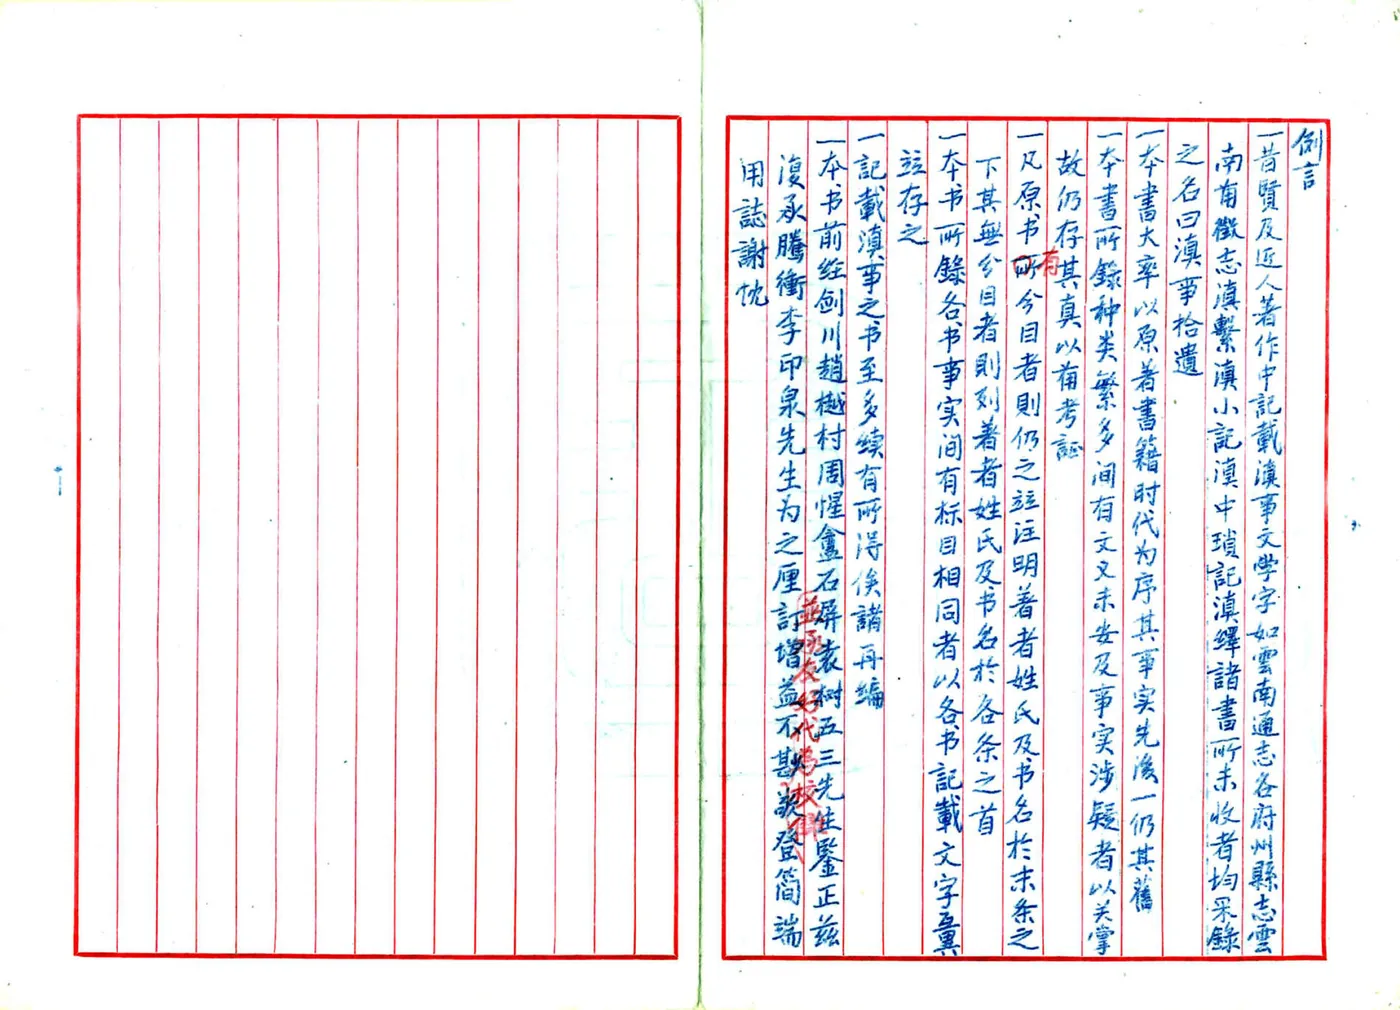 例言
一昔賢及近人著作中記載滇事文学字如雲南通志各府州縣志雲
南备徵志滇繫滇小記滇中瑣記滇繹諸書所未收者均采錄
之名曰滇事拾遺
一本書大率以原着書籍时代为序其事实先後一仍其舊
一本書所錄种类繁多间有文义未安及事实涉疑者以关掌
故仍存其真以备考証
一凡原书所有分目者則仍之竝注明著者姓氏及书名於末条之
下其無分目者則列著者姓氏及书名於各条之首
一本书所錄各书事实间有标目相同者以各书記載文字互異
竝存之
一記載滇事之书至多续有所淂俟諸再编
一本书前经剑川趙樾村周惺盦石屏袁树五三先生鑒正兹
復承騰衝李印泉先生为之厘訂增益不
並承友好代爲校
登简端
用誌謝忱